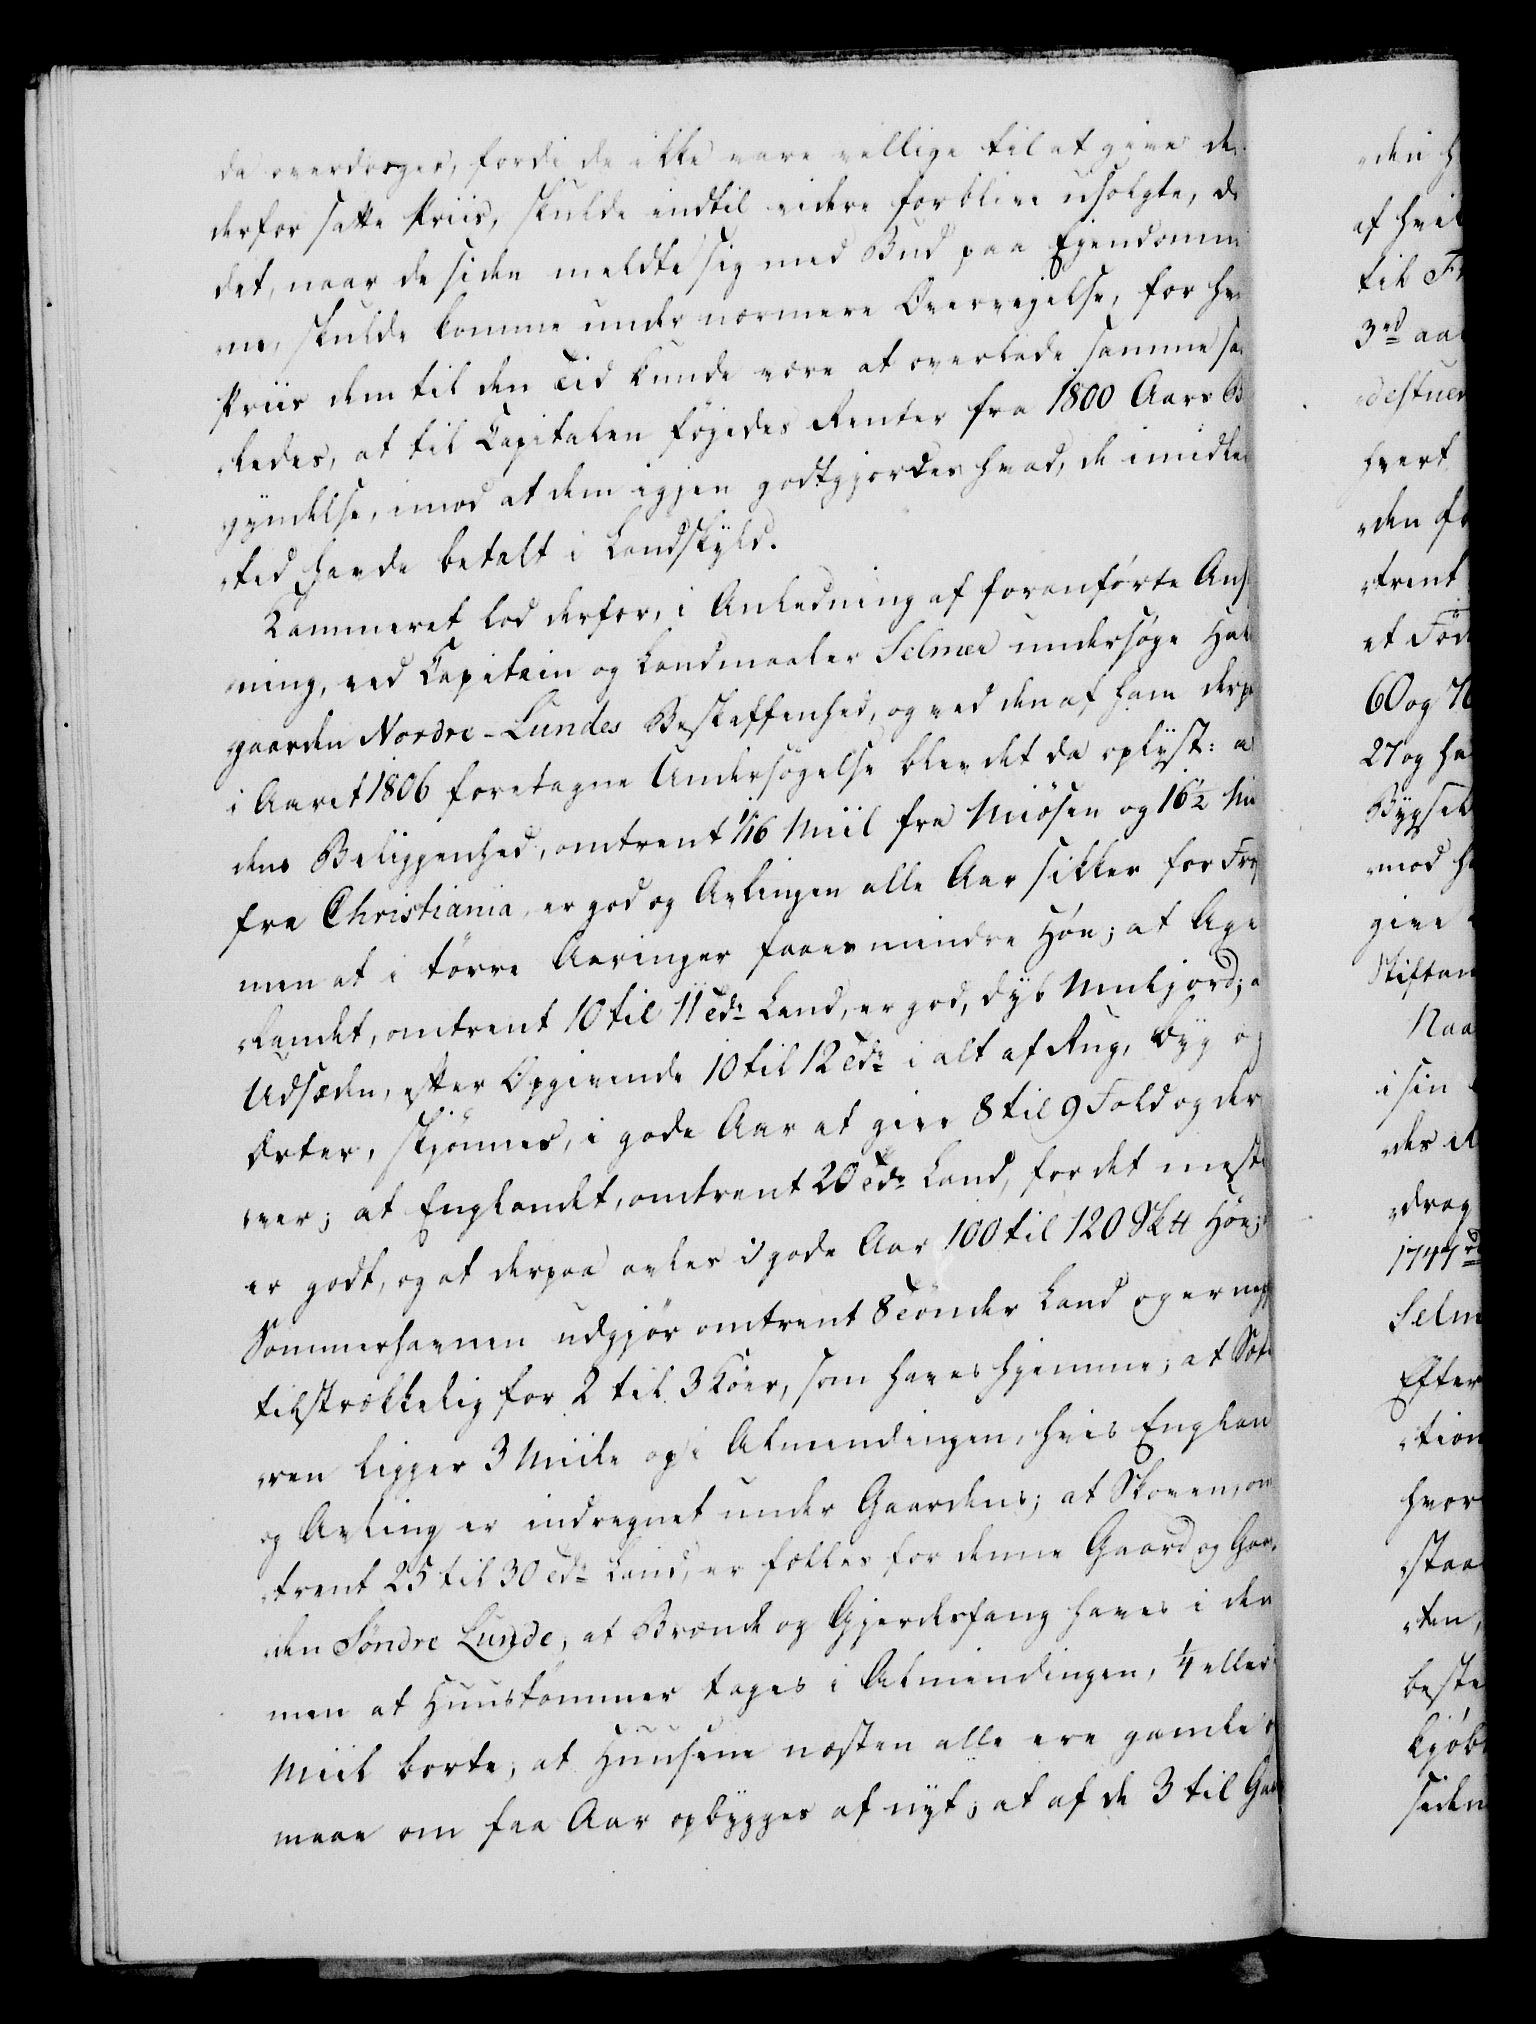 da overdrages, fordi de ikke vare villige til at give de
derfor satte Priis, skulde indtil videre forblive usolgte,
det, naar de siden meldte sig med Bud paa Eyendomm
me, skulde komme under nærmere Overvejelse, for hv
Priis dem til den Tid kunde være at overlade samme saa
ledes, at til Capitalen föjedes Renter fra 1800 Aars Be
gyndelse, imod at dem igjen godtgjordes hvad, de imidler
tid havde betalt i Landskyld.
Kammeret lod derfor, i Anledning af foranförte Ans
ning, ved Capitain og Landmaaler Selmer undersöge
gaarden Nordre-Lundes Beskaffenhed, og ved den af ham derpaa
i Aaret 1806 foretagne Undersögelse blev det da oplyst: a
dens Beliggenhed, omtrent 1/16 Miil fra Miösen og 16½ Mi
fra Christiania, er god og Avlingen alle Aar sikker for
men at i törre Aaringer faaes mindre Höe; at Age
landet, omtrent 10 til 11 Tdr Land, er god, dyb Muldjord; a
Udsæden, efter Opgivende 10 til 12 Tdr i alt af Rug, Byg og
Ærter, skjönnes, i gode Aar at give 8 til 9 Fold og der
over; at Englandet, omtrent 20 Tdr Land, for det meste
er godt, og at derpaa avles i gode Aar 100 til 120 Sk℔ Höe;
Sommerhavnen udgjör omtrent 8 Tönder Land og er neppe
tilstrækkelig for 2 til 3 Köer, som haves hjemme; at Sæte
ren ligger 3 Miile op i Almendingen, hvis Englan
og Avling er indregnet under Gaardens; at Skoven, om
trent 25 til 30 Tdr Land, er fælles for denne Gaard og Gaar
den Söndre Lunde, at Brænde og Gjerdefang haves i den
men at Huustömmer tages i Almendingen, ¼ eller
Miil borte; at Huusene næsten alle ere gamle o
maae om faa Aar opbygges af nyt; at af de 3 til Gaa
den h
af hvil
til
3de aa
hvert
den
trent
et Föd
60 og
27 og ha
Bygsel
mod h
give
Stiftam
Naa
i sin
des
drag
1747
Selm
Efter
tion
hvor
staa
ten,
beste
kjöb
siden